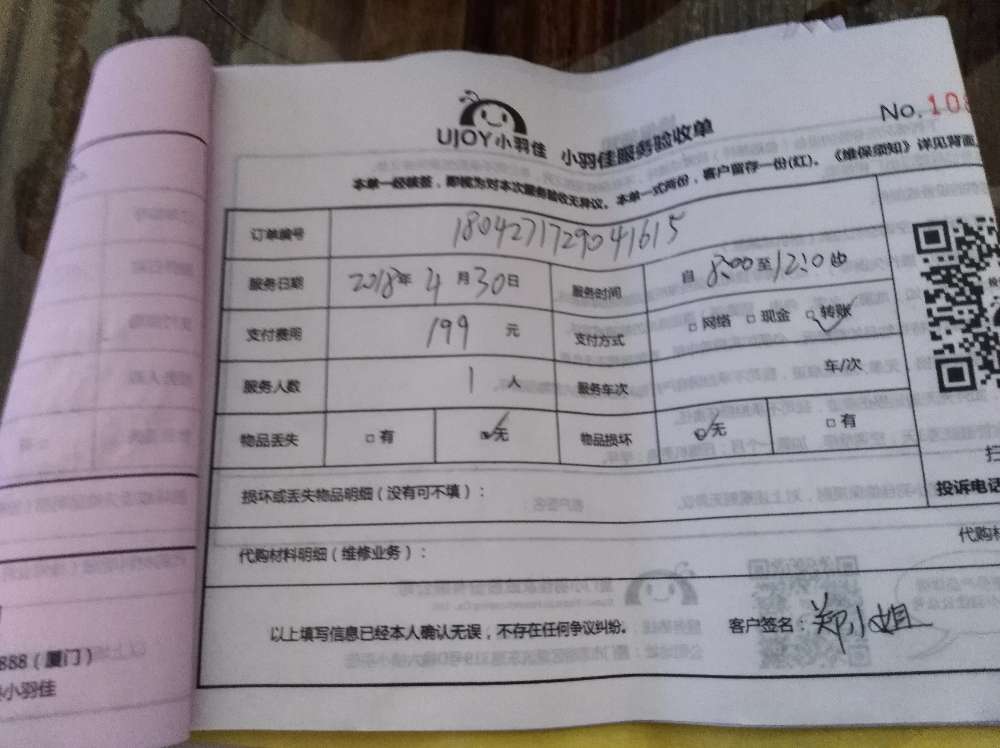 No. 108
UJOY小羽佳 小羽佳服务验收单
本单一经核签，即视为对本次服务验收无异议。本单一式两份，客户留存一份(红)。《维保须知》详见背面。
订单编号 1804271729041615
服务日期 2018年 4月30日 服务时间 自8:00至12:00
支付费用 199 元 支付方式 □网络 □现金 □转账
服务人数 1 人 服务车次 车/次
物品丢失 □有 □无 物品损坏 □无 □有
损坏或丢失物品明细（没有可不填）：
投诉电话
代购材料明细（维修业务）：
代购材
以上填写信息已经本人确认无误，不存在任何争议纠纷。 客户签名：郑小姐
888（厦门）
小羽佳